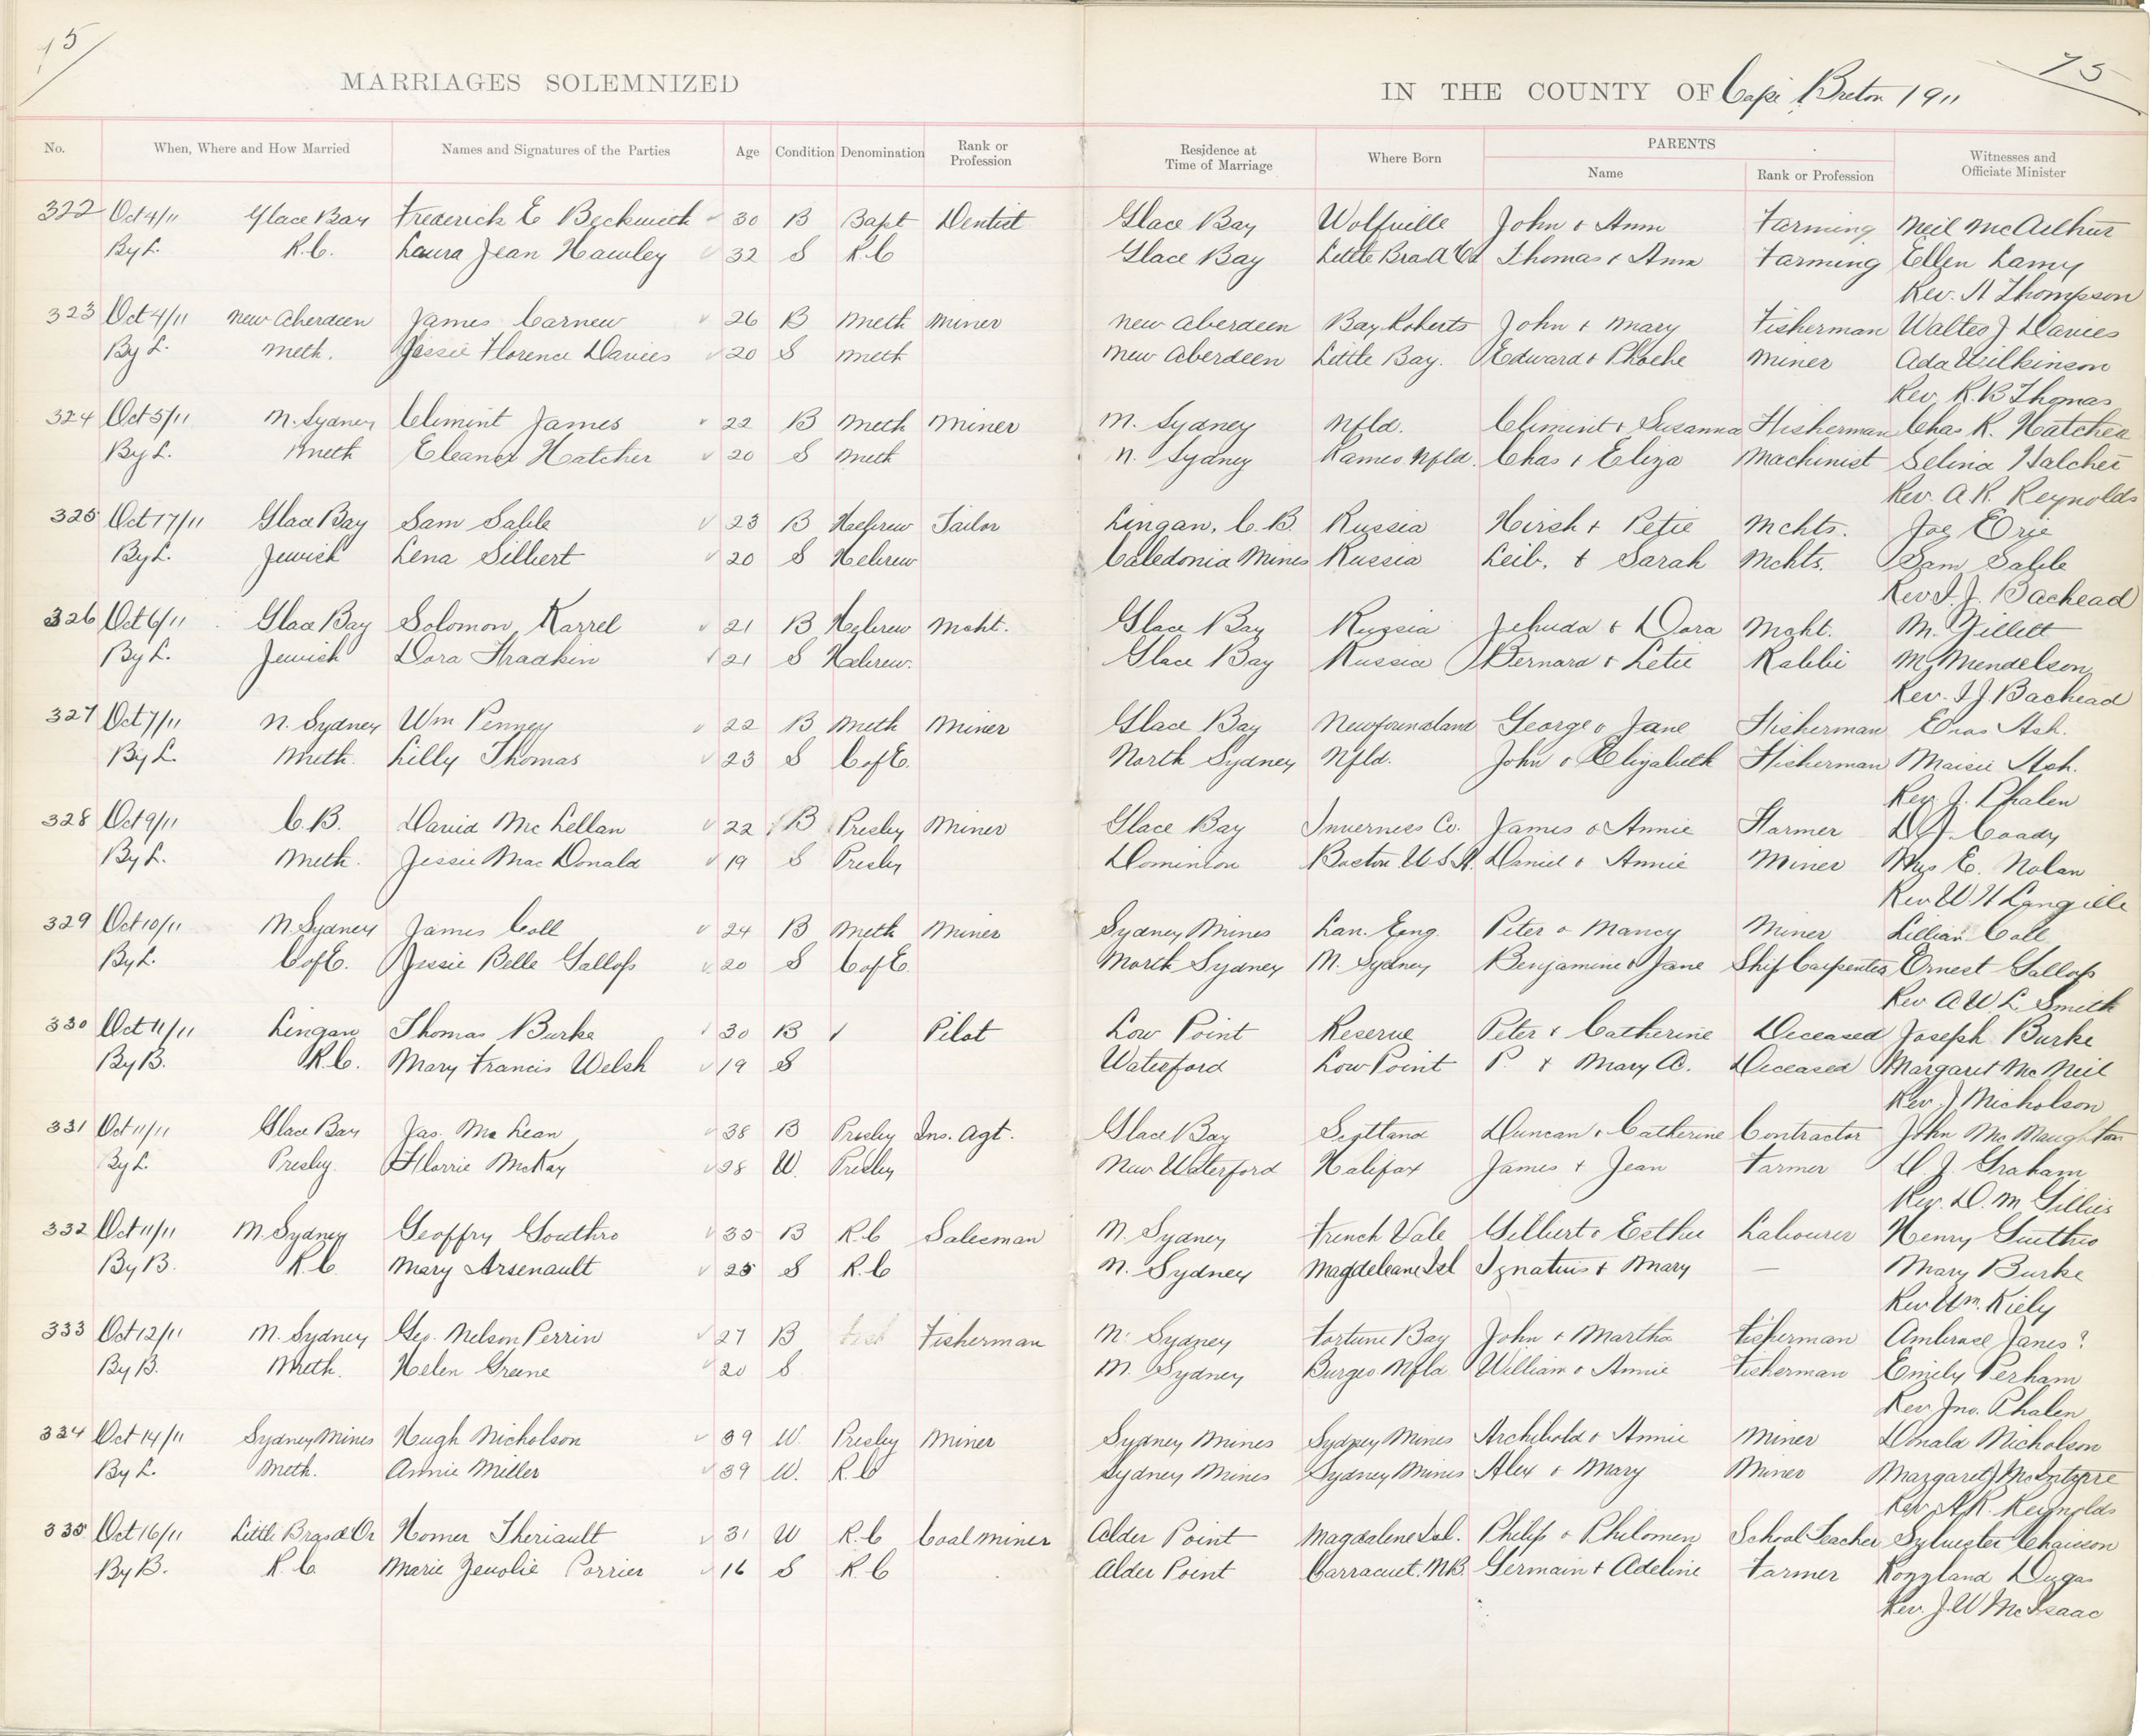 75
75
MARRIAGES SOLEMNIZED IN THE COUNTY OF Cape Breton 1911
No. When, Where and How Married Names and Signatures of the Parties Age Condition Denomination Rank or Profession Residence at Time of Marriage Where Born PARENTS Name Rank or Profession Witnesses and Officiate Minister
322 Oct 4/11 Glace Bay Frederick E Beckwith 30 B Bapt Dentist Glace Bay Wolfville John & Ann Farming Neil McArthur
By L. R.C. Laura Jean Hawley 32 S R.C Glace Bay Little Bras d'Or Thomas & Ann Farming Ellen Lamy
Rev. A Thompson
323 Oct 4/11 New Aberdeen James Carnew 26 B Meth Miner New Aberdeen Bay Roberts John & Mary Fisherman Walter J Davies
By L. Meth. Jessie Florence Davies 20 S Meth New Aberdeen Little Bay. Edward & Phoebe Miner Ada Wilkinson
Rev. R.B Thomas
324 Oct 5/11 N. Sydney Climint James 22 B Meth Miner N. Sydney Nfld. Climint & Susanna Fisherman Chas R. Hatcher
By L. Meth Eleanor Hatcher 20 S Meth N. Sydney Rameo Nfld. Chas & Eliza Machinist Selina Hatcher
Rev. A R. Reynolds
325 Oct 17/11 Glace Bay Sam Sable 23 B Hebrew Tailor Lingan, C.B. Russia Hirsh & Petie Mchts. Joe Erie
By L. Jewish Lena Silbert 20 S Hebrew Caledonia Mines Russia Leib. & Sarah Mchts. Sam Sable
Rev I. J. Bachead
326 Oct 6/11 Glace Bay Solomon Karrel 21 B Hebrew Mcht. Glace Bay Russia Jehuda & Dora Mcht. M. Gillett
By L. Jewish Dora Fradkin 21 S Hebrew. Glace Bay Russia Bernard & Letie Rabbi M. Mendelson
Rev. I J. Bachead
327 Oct 7/11 N. Sydney Wm Penney 22 B Meth Miner Glace Bay Newfoundland George & Jane Fisherman Enos Ash.
By L. Meth. Lilly Thomas 23 S C of E. North Sydney Nfld. John & Elizabeth Fisherman Maisie Ash.
Rev. J. Phalen
328 Oct 9/11 C.B. David McLellan 22 B Presby Miner Glace Bay Inverness Co. James & Annie Farmer D J. Coady
By L. Meth. Jessie MacDonald 19 S Presby Dominion Boston U.S.A. Daniel & Annie Miner Mrs E. Nolan
Rev W. H Langille
329 Oct 10/11 N. Sydney James Coll 24 B Meth Miner Sydney Mines Lan. Eng. Peter & Nancy Miner Lillian Coll
By L. C of E. Jessie Belle Gallop 20 S C of E. North Sydney N. Sydney Benjamine & Jane Ship Carpenter Ernest Gallop
Rev A W. L. Smith
330 Oct 11/11 Lingan Thomas Burke 30 B Pilot Low Point Reserve Peter & Catherine Deceased Joseph Burke
By B. R.C. Mary Francis Welsh 19 S Waterford Low Point P. & Mary A. Deceased Margaret McNeil
Rev. J Nicholson
331 Oct 11/11 Glace Bay Jas. McLean 38 B Presby Ins. Agt. Glace Bay Scotland Duncan & Catherine Contractor John McNaughton
By L. Presby. Florrie McKay 28 W. Presby New Waterford Halifax James & Jean Farmer W. J. Graham
Rev. D. M. Gillies
332 Oct 11/11 N. Sydney Geoffry Gouthro 35 B R.C Salesman N. Sydney French Vale Gilbert & Esther Labourer Henry Guthro
By B. R.C. Mary Arsenault 25 S R.C N. Sydney Magdeleane Isl Ignatius & Mary — Mary Burke
Rev Wm. Kiely
333 Oct 12/11 N. Sydney Geo. Nelson Perrin 27 B Fisherman N. Sydney Fortune Bay John & Martha Fisherman Ambrose Janes?
By B. Meth. Helen Greene 20 S N. Sydney Burgeo Nfld William & Annie Fisherman Emily Perham
Rev. Jno. Phalen
334 Oct 14/11 Sydney Mines Hugh Nicholson 39 W. Presby Miner Sydney Mines Sydney Mines Archibald & Annie Miner Donald Nicholson
By L. Meth. Annie Miller 39 W. R.C Sydney Mines Sydney Mines Alex & Mary Miner Margaret J McIntyre
Rev. A.R. Reynolds
335 Oct 16/11 Little Bras d'Or Homer Theriault 31 W R.C Coal miner Alder Point Magdalene Isl. Philip & Philomen School Teacher Sylvester Chaisson
By B. R.C. Marie Zenolie Porrier 16 S R.C Alder Point Carracuet. N.B. Germain & Adeline Farmer Dugas
Rev. J. W McIsaac